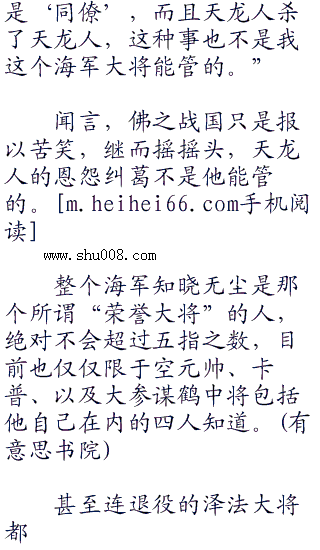 是‘同僚’，而且天龙人杀
了天龙人，这种事也不是我
这个海军大将能管的。”
闻言，佛之战国只是报
以苦笑，继而摇摇头，天龙
人的恩怨纠葛不是他能管
的。[m.heihei66.com手机阅
读]
www.shu008.com
整个海军知晓无尘是那
个所谓“荣誉大将”的人，
绝对不会超过五指之数，目
前也仅仅限于空元帅、卡
普、以及大参谋鹤中将包括
他自己在内的四人知道。(有
意思书院)
甚至连退役的泽法大将
都